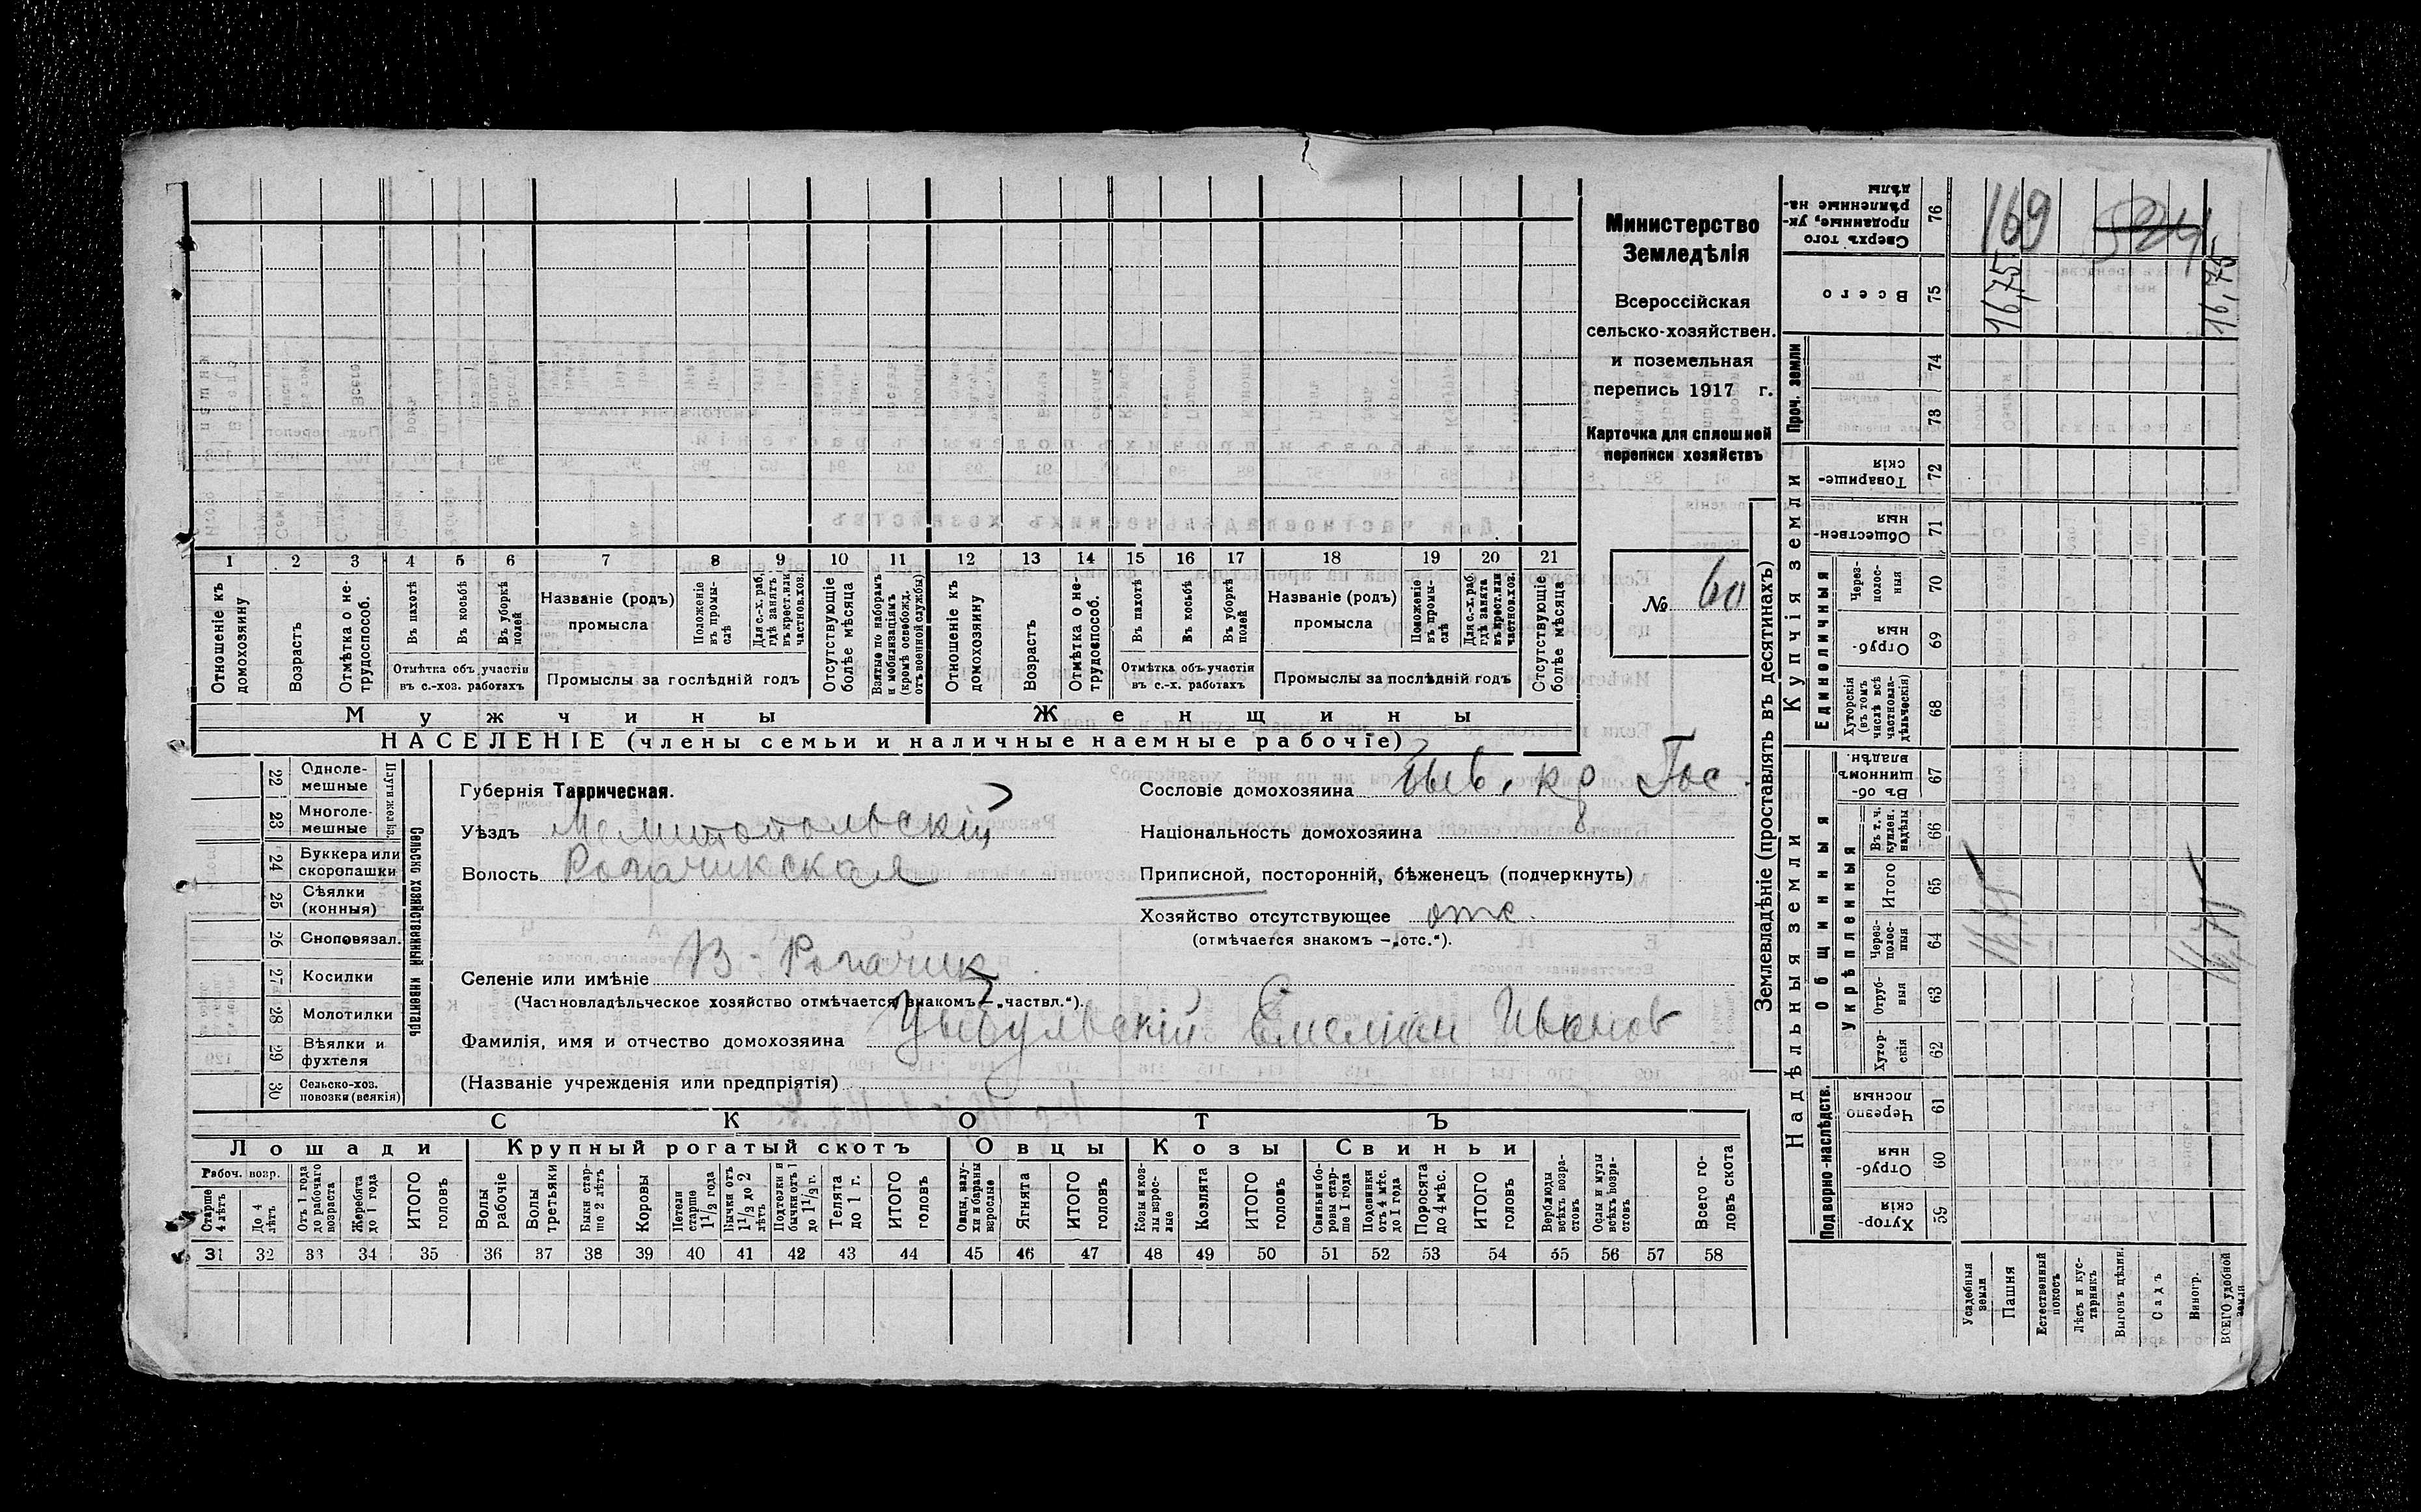 Министерство
Земледѣлія
Всероссійская
сельско-хозяйствен.
и поземельная
перепись 1917 г.
Карточка для сплошной
переписи хозяйствъ
№ 60
1 2 3 4 5 6 7 8 9 10 11 12 13 14 15 16 17 18 19 20 21
Отношеніе къ домохозяину
Возрастъ
Отмѣтка о не-трудоспособ.
Въ пахотѣ
Въ косьбѣ
Въ уборкѣ полей
Отмѣтка объ участіи
въ с.-хоз. работахъ
Названіе (родъ)
промысла
Положеніе въ промы-слѣ
Для с.-х. раб. гдѣ занятъ въ крест. или частнов. хоз.
Промыслы за послѣдній годъ
Отсутствующіе болѣе мѣсяца
Взятые по наборамъ и мобилизаціямъ (кромѣ освобожд. отъ военной службы)
Отношеніе къ домохозяину
Возрастъ
Отмѣтка о не-трудоспособ.
Въ пахотѣ
Въ косьбѣ
Въ уборкѣ полей
Отмѣтка объ участіи
въ с.-х. работахъ
Названіе (родъ)
промысла
Положеніе въ промы-слѣ
Для с.-х. раб. гдѣ занята въ крест. или частнов. хоз.
Промыслы за послѣдній годъ
Отсутствующіе болѣе мѣсяца
Мужчины
Женщины
НАСЕЛЕНІЕ (члены семьи и наличные наемные рабочіе)
22 Одноле-мешные
23 Многоле-мешные
24 Буккера или скоропашки
25 Сѣялки (конныя)
26 Сноповязал.
27 Косилки
28 Молотилки
29 Вѣялки и фухтеля
30 Сельско-хоз. повозки (всякія)
Сельско хозяйственный инвентарь
Губернія Таврическая.
Уѣздъ Мелитопольскій
Волость Рогачикская
Селеніе или имѣніе В-Рогачик
(Частновладѣльческое хозяйство отмѣчается знакомъ – „частвл.“).
Фамилія, имя и отчество домохозяина Цыбульскій Емельян Иванов
(Названіе учрежденія или предпріятія)
Сословіе домохозяина Быв. кр Гос
Національность домохозяина
Приписной, посторонній, бѣженецъ (подчеркнуть)
Хозяйство отсутствующее отс.
(отмѣчается знакомъ – „отс.“).
СКОТЪ
Лошади
Крупный рогатый скотъ
Овцы
Козы
Свиньи
Рабоч. возр.
Старше 4 лѣтъ
До 4 лѣтъ
Отъ 1 года до рабочаго возраста
Жеребята до 1 года
ИТОГО головъ
Волы рабочіе
Волы третьяки
Быки стар-ше 2 лѣтъ
Коровы
Нетели старше 1½ года
Бычки отъ 1½ до 2 лѣтъ
Подтелки и бычки отъ 1 до 1½ г.
Телята до 1 г.
ИТОГО головъ
Овцы, валу-хи и бараны взрослые
Ягнята
ИТОГО головъ
Козы и коз-лы взрос-лые
Козлята
ИТОГО головъ
Свиньи бо-ровы стар-ше 1 года
Подсвинки отъ 4 мѣс. до 1 года
Поросята до 4 мѣс.
ИТОГО головъ
Верблюды всѣхъ возра-стовъ
Ослы и мулы всѣхъ возра-стовъ
Всего го-ловъ скота
31 32 33 34 35 36 37 38 39 40 41 42 43 44 45 46 47 48 49 50 51 52 53 54 55 56 57 58
Землевладѣніе (проставлять въ десятинахъ)
Надѣльныя земли
Купчія земли
Проч. земли
Подворно-наслѣдств.
Общинныя
Укрѣпленныя
Единоличныя
Сверхъ того проданные, ук-рѣпленные на-дѣлы 76
Всего 75
74
73
Товарище-скія 72
Обществен-ныя 71
Через-полос-ныя 70
Отруб-ныя 69
Хуторскія (въ томъ числѣ всѣ частновла-дѣльческія) 68
Въ об-щинномъ владѣн. 67
Въ т. ч. куплен. надѣлы 66
Итого 65
Через-полос-ныя 64
Отруб-ныя 63
Хутор-скія 62
Черезпо лосныя 61
Отруб-ныя 60
Хутор-скія 59
169
524
16,75
16,75
16,75
16,75
Усадебныя земли
Пашня
Естественный покосъ
Лѣсъ и кус-тарникъ
Выгонъ цѣлин.
Садъ
Виногр.
ВСЕГО удобной земли